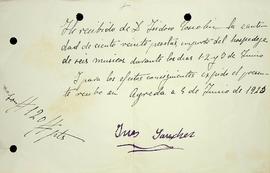 He recibido de D. Isidro la canti
dad de ciento veinte pesetas importe del hospedaje
de seis musicos durante los dias 1, 2 y 3 de Junio
Y para los efectos consiguientes expido el presen
te recibo en Agreda a 5 de Junio de 1925
#120# pts
Ines Sanchez